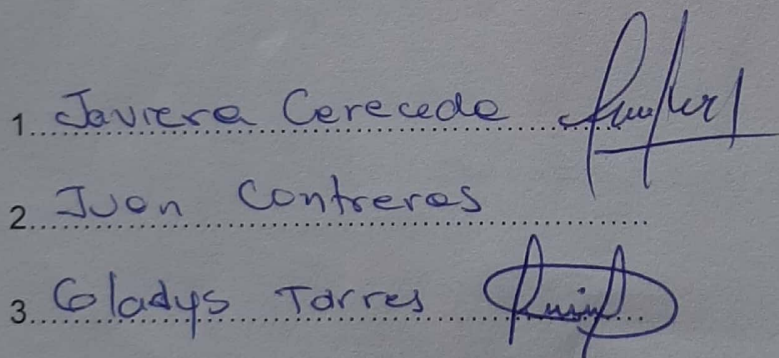 1. Javiera Cereceda
2. Juan Contreras
3. Gladys Torres